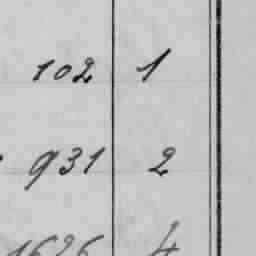 102 1
931 2
1626 4